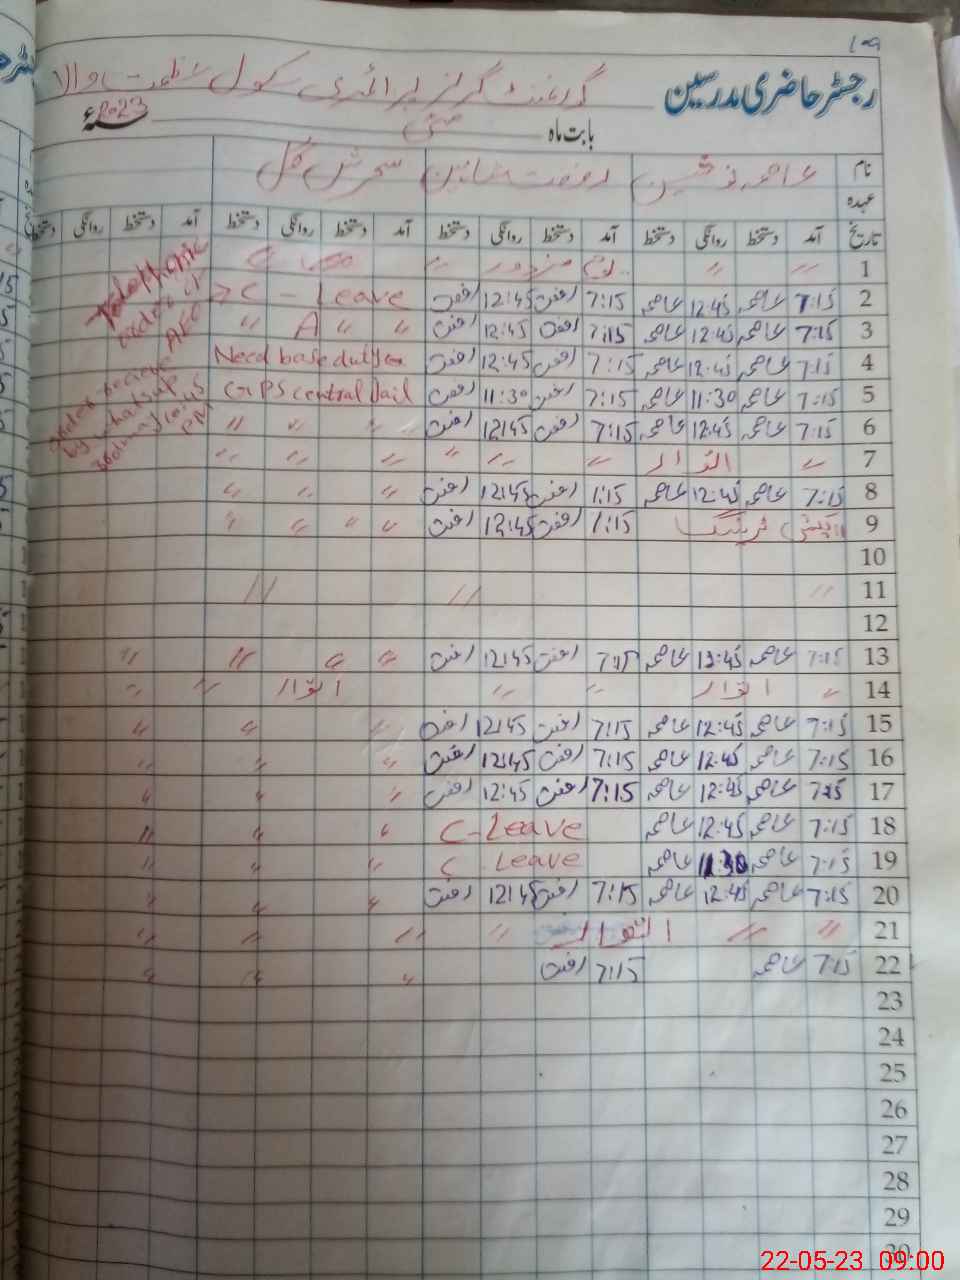 109
رجسٹر حاضری مدرسین گورنمنٹ گرلز پرائمری سکول عظمت والا
بابت ماہ مئی سنہ 2023ء
نام عاصمہ رفعت شاہین سحرش گل
عہدہ
تاریخ آمد دستخط روانگی دستخط آمد دستخط روانگی دستخط آمد دستخط روانگی دستخط آمد دستخط روانگی دستخط
1 〃 〃 یوم مزدور 〃
2 7:15 عاصمہ 12:45 عاصمہ 7:15 رفعت 12:45 رفعت C - Leave
3 7:15 عاصمہ 12:45 عاصمہ 7:15 رفعت 12:45 رفعت 〃 〃 A 〃
4 7:15 عاصمہ 12:45 عاصمہ 7:15 رفعت 12:45 رفعت Need base duty
5 7:15 عاصمہ 11:30 عاصمہ 7:15 رفعت 11:30 رفعت GGPS central Jail
Telephonic order of AEO
order recieve by whatsup 10:45 PM
6 7:15 عاصمہ 12:45 عاصمہ 7:15 رفعت 12:45 رفعت 〃 〃 〃 〃
7 〃 اتوار 〃 〃 〃 〃 〃 〃
8 7:15 عاصمہ 12:45 عاصمہ 7:15 رفعت 12:45 رفعت 〃 〃 〃
9 ٹریننگ 7:15 رفعت 12:45 رفعت 〃 〃 〃 〃
10
11 〃 〃 〃
12
13 7:15 عاصمہ 12:45 عاصمہ 7:15 رفعت 12:45 رفعت 〃 〃 〃 〃
14 〃 اتوار 〃 〃 اتوار 〃 〃
15 7:15 عاصمہ 12:45 عاصمہ 7:15 رفعت 12:45 رفعت 〃 〃 〃
16 7:15 عاصمہ 12:45 عاصمہ 7:15 رفعت 12:45 رفعت 〃 〃 〃
17 7:15 عاصمہ 12:45 عاصمہ 7:15 رفعت 12:45 رفعت 〃 〃 〃
18 7:15 عاصمہ 12:45 عاصمہ C-Leave 〃 〃 〃
19 7:15 عاصمہ 11:30 عاصمہ C Leave 〃 〃 〃
20 7:15 عاصمہ 12:45 عاصمہ 7:15 رفعت 12:45 رفعت 〃 〃 〃
21 〃 〃 اتوار 〃 〃 〃 〃
22 7:15 عاصمہ 7:15 رفعت 〃 〃 〃
23
24
25
26
27
28
29
30
22-05-23 09:00